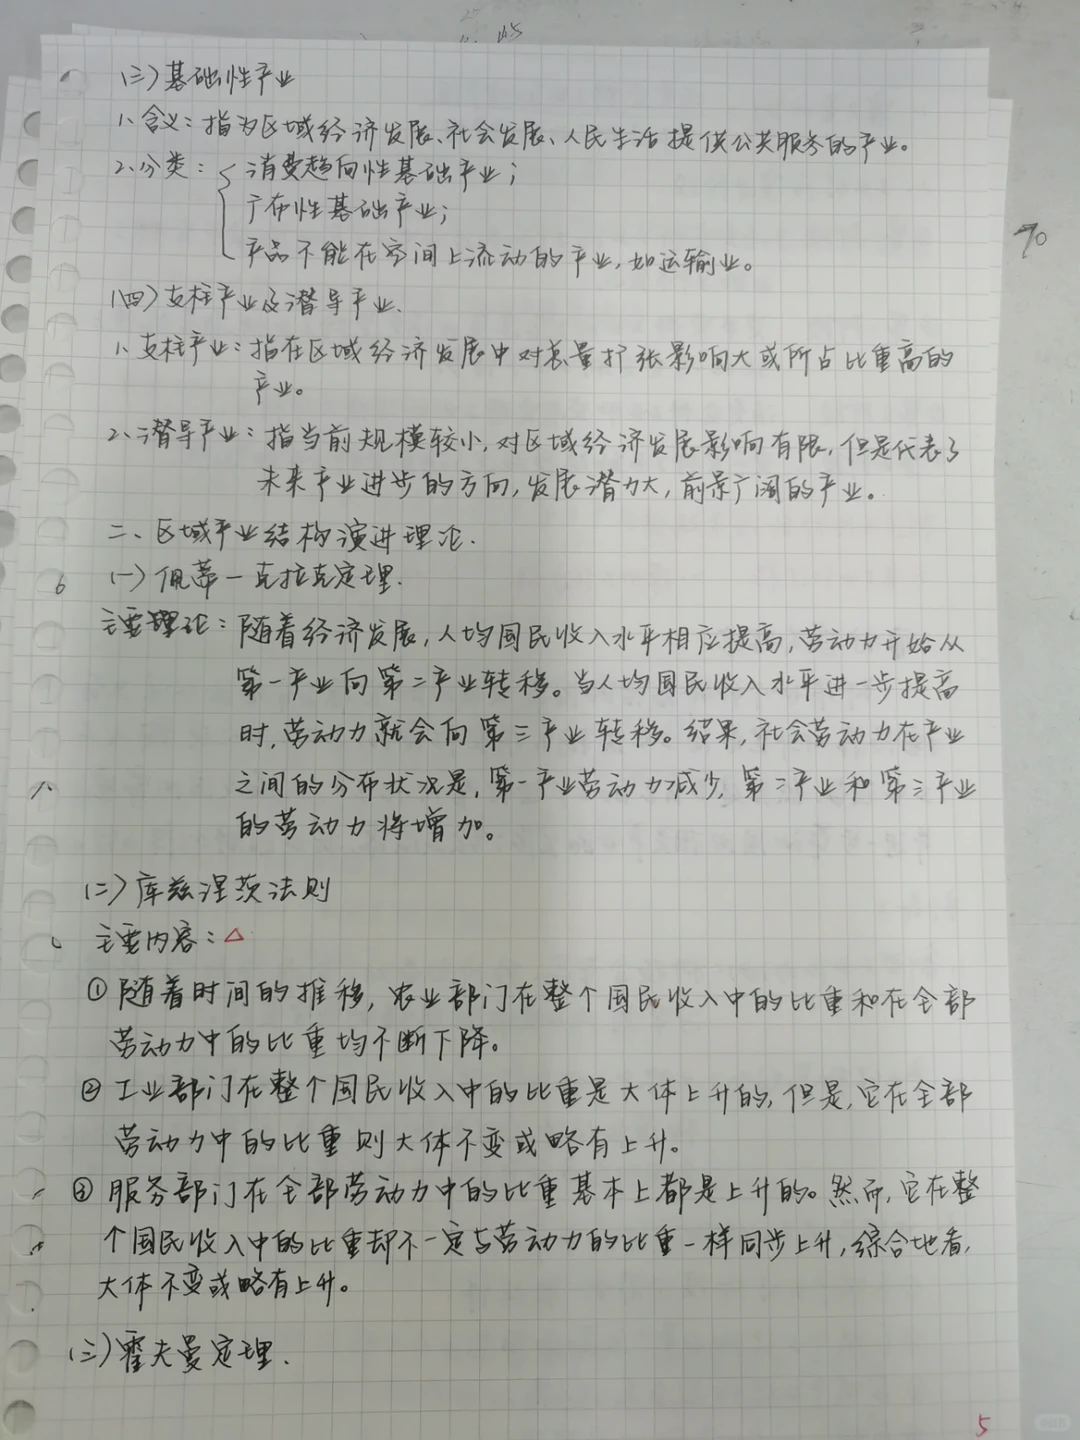 (三)基础性产业
1、含义：指为区域经济发展、社会发展、人民生活提供公共服务的产业。
2、分类：消费趋向性基础产业；
广布性基础产业；
产品不能在空间上流动的产业，如运输业。
(四)支柱产业及潜导产业.
1、支柱产业：指在区域经济发展中对总量扩张影响大或所占比重高的
产业。
2、潜导产业：指当前规模较小，对区域经济发展影响有限，但是代表了
未来产业进步的方向，发展潜力大，前景广阔的产业。
二、区域产业结构演进理论.
(一)佩蒂一克拉克定理.
主要理论：随着经济发展，人均国民收入水平相应提高，劳动力开始从
第一产业向第二产业转移。当人均国民收入水平进一步提高
时，劳动力就会向第三产业转移。结果，社会劳动力在产业
之间的分布状况是，第一产业劳动力减少，第二产业和第三产业
的劳动力将增加。
(二)库兹涅茨法则
主要内容：△
①随着时间的推移，农业部门在整个国民收入中的比重和在全部
劳动力中的比重均不断下降。
②工业部门在整个国民收入中的比重是大体上升的，但是，它在全部
劳动力中的比重则大体不变或略有上升。
③服务部门在全部劳动力中的比重基本上都是上升的。然而，它在整
个国民收入中的比重却不一定与劳动力的比重一样同步上升，综合地看，
大体不变或略有上升。
(三)霍夫曼定理.
5
70